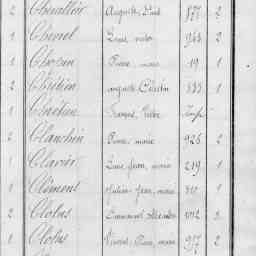 2 Chevallier Auguste, Louis 877 2
1 Chenel Louis, Victor 943 2
1 Chopin Pierre, marie 19 1
2 Chrétien auguste Célestin 833 1
1 Chrétien François, Victor
2 Clanchin Pierre, marie 926 2
1 Clavier Louis, Jean, marie 219 1
1 Clément Julien, Jean, marie 810 1
2 Clolus Emmanuel, Alexandre 1012 2
1 Clolus Vincent, Pierre, marie 917 2